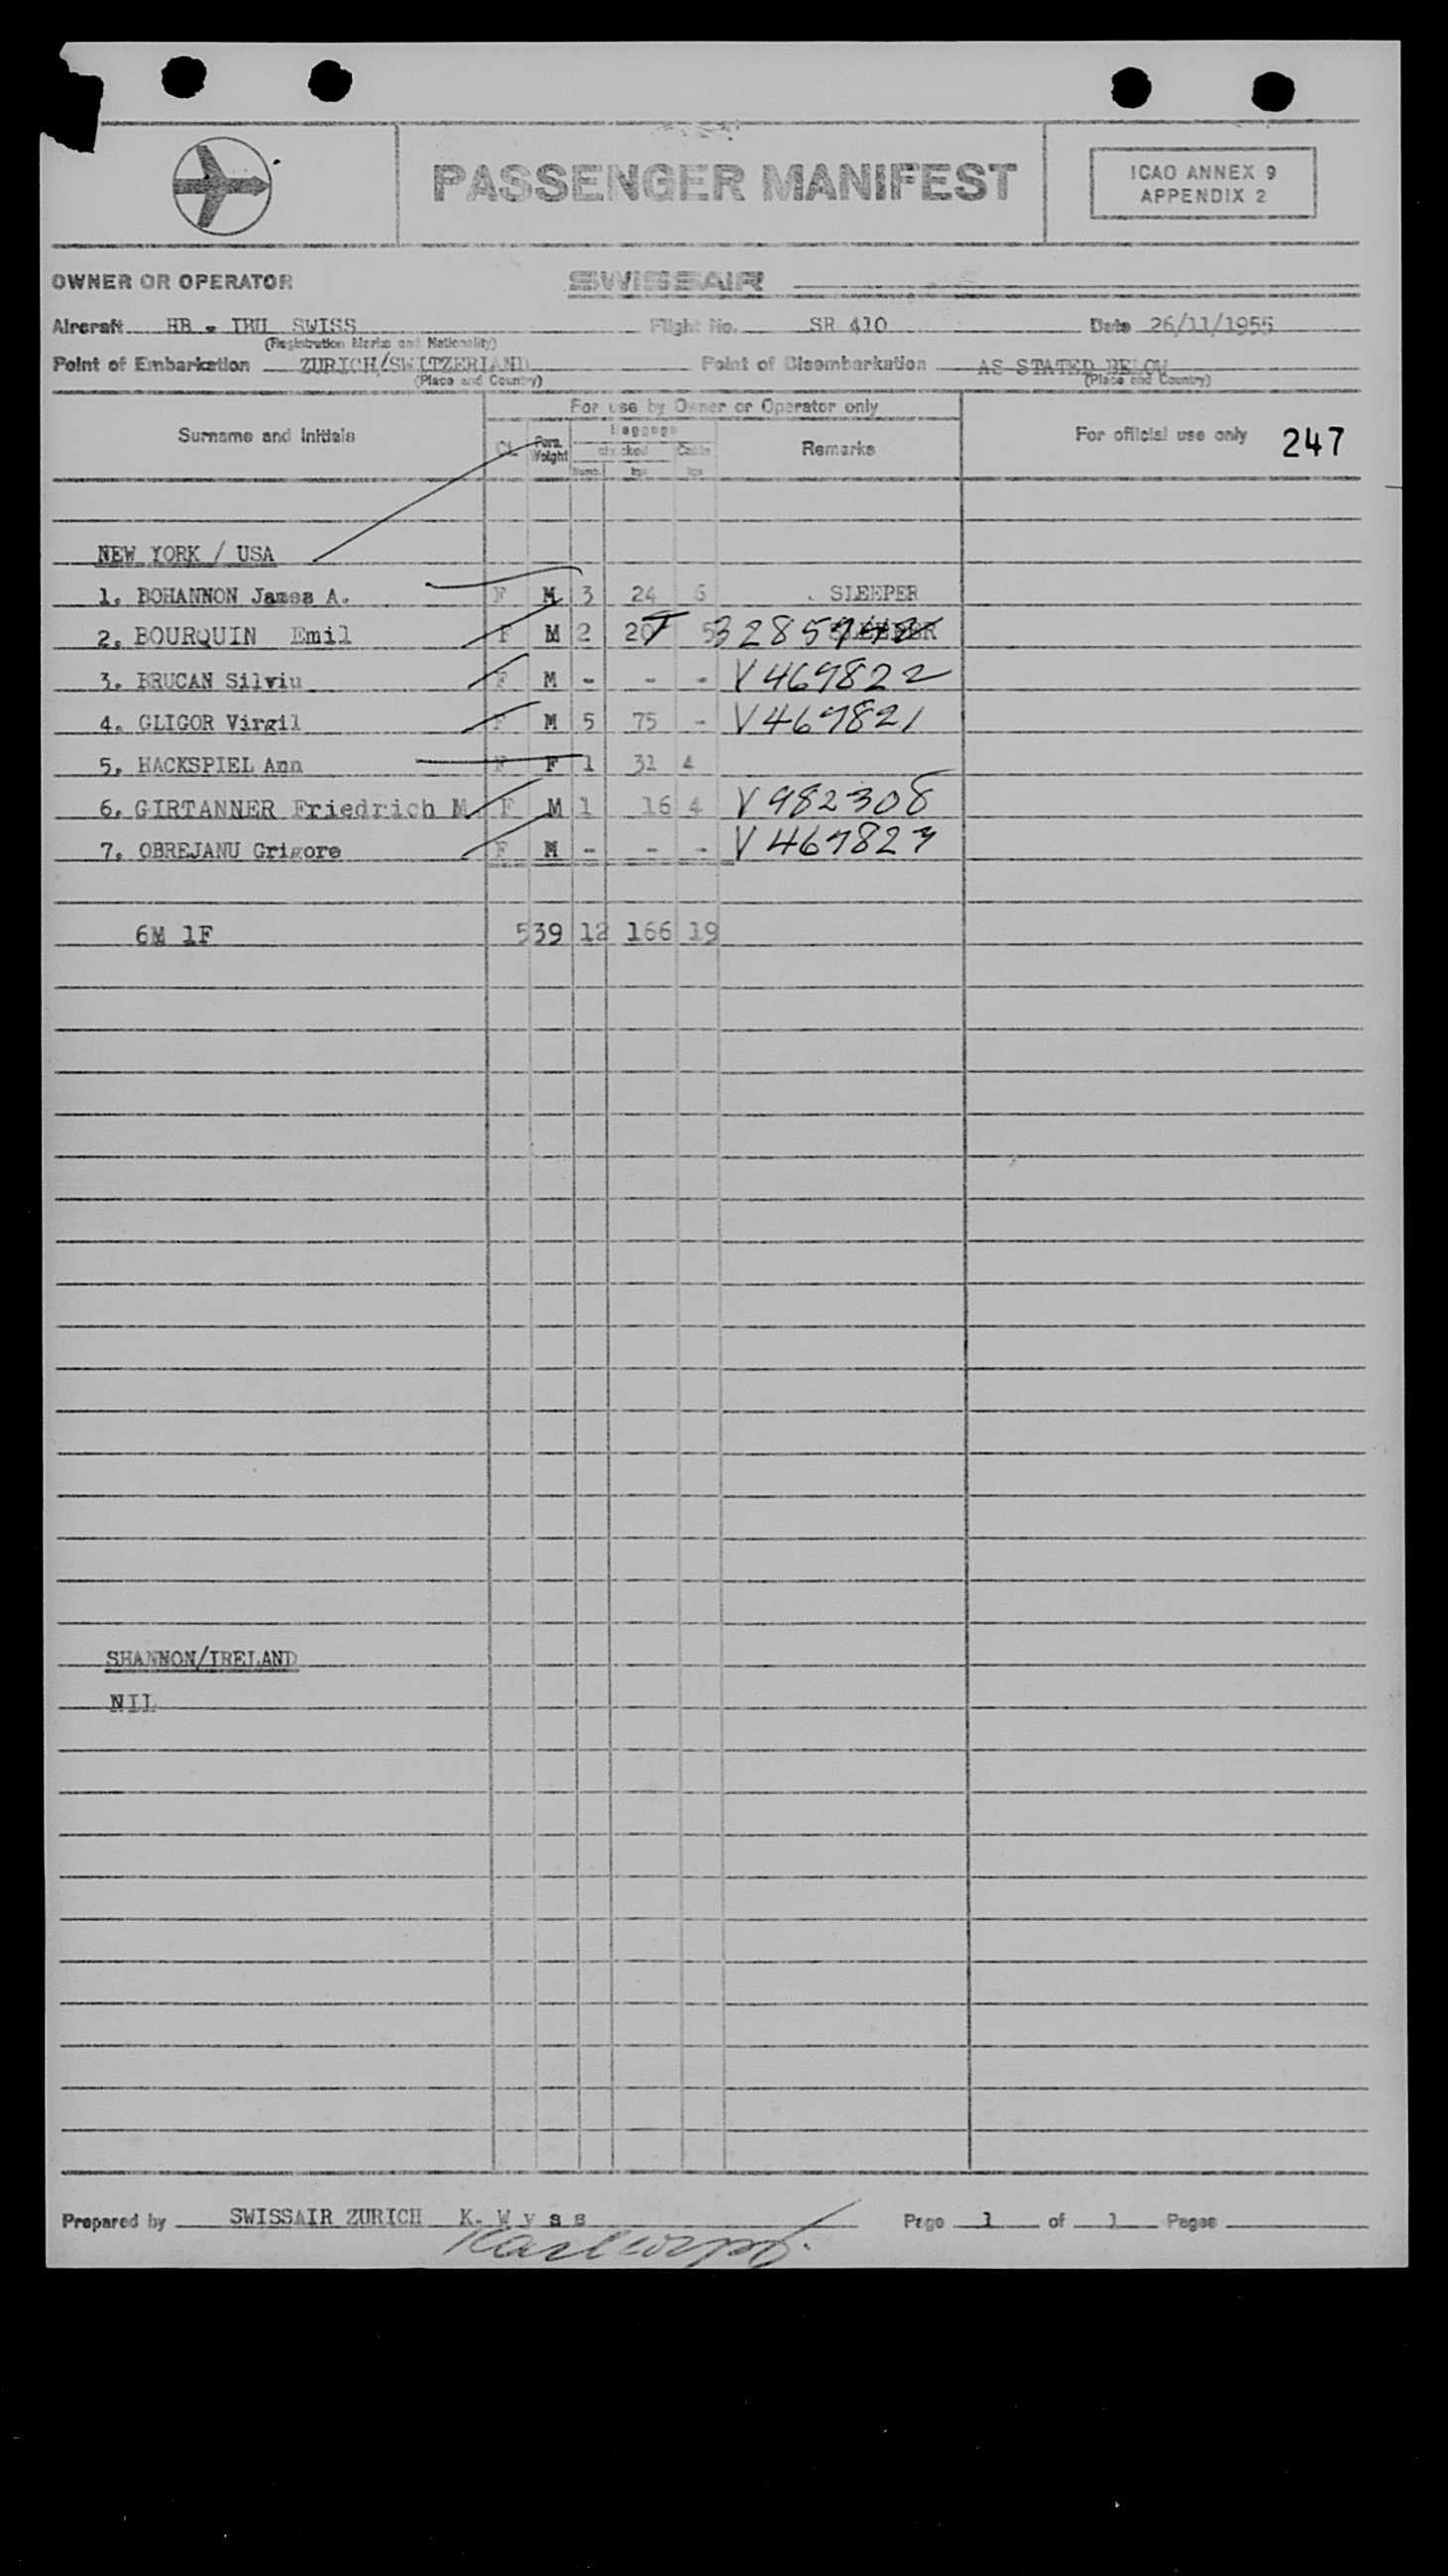 PASSENGER MANIFEST
ICAO ANNEX 9
APPENDIX 2
OWNER OR OPERATOR SWISSAIR
Aircraft HB - IBU SWISS Flight No. SR 410 Date 26/11/1955
(Registration Marks and Nationality)
Point of Embarkation ZURICH/SWITZERLAND Point of Disembarkation AS STATED BELOW
(Place and Country) (Place and Country)
For use by Owner or Operator only
Surname and initials Cl. Pers. Weight Baggage checked Cabin Remarks For official use only 247
Numb. kgs kgs
NEW YORK / USA
1. BOHANNON James A. F M 3 24 6 SLEEPER
2. BOURQUIN Emil F M 2 20 5 SLEEPER
3. BRUCAN Silviu F M - - - V 469822
4. GLIGOR Virgil F M 5 75 - V 469821
5. HACKSPIEL Ann F F 1 31 4
6. GIRTANNER Friedrich M F M 1 16 4 V 982308
7. OBREJANU Grigore F M - - - V 469823
6M 1F 539 12 166 19
SHANNON/IRELAND
NIL
Prepared by SWISSAIR ZURICH K. W y s s Page 1 of 1 Pages